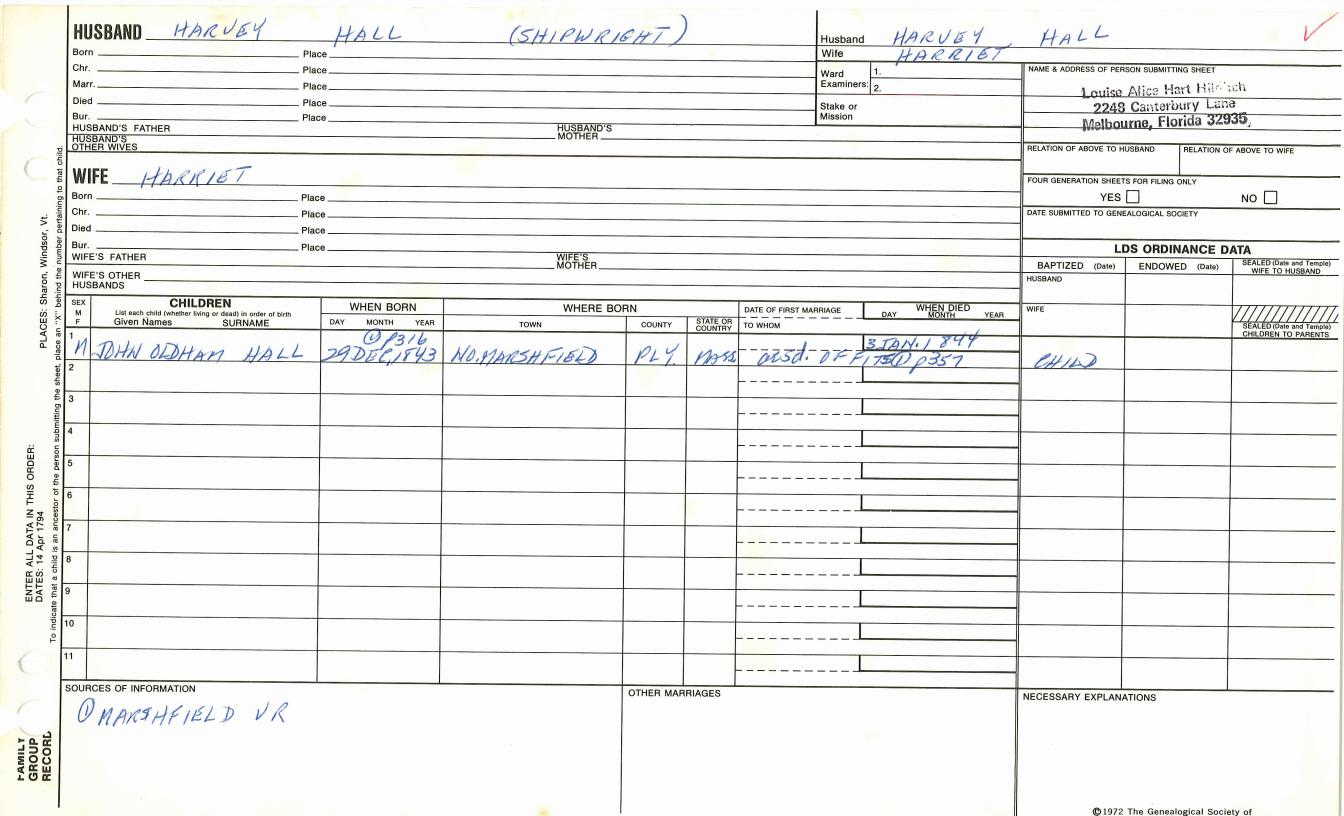 HUSBAND HARVEY HALL (SHIPWRIGHT)
Born Place
Chr. Place
Marr. Place
Died Place
Bur. Place
HUSBAND'S FATHER HUSBAND'S MOTHER
HUSBAND'S OTHER WIVES
Husband HARVEY HALL
Wife HARRIET
Ward Examiners: 1.
2.
Stake or Mission
NAME & ADDRESS OF PERSON SUBMITTING SHEET
Louise Alice Hart
2248 Canterbury Lane
Melbourne, Florida 32935
RELATION OF ABOVE TO HUSBAND RELATION OF ABOVE TO WIFE
FOUR GENERATION SHEETS FOR FILING ONLY
YES NO
DATE SUBMITTED TO GENEALOGICAL SOCIETY
WIFE HARRIET
Born Place
Chr. Place
Died Place
Bur. Place
WIFE'S FATHER WIFE'S MOTHER
WIFE'S OTHER HUSBANDS
LDS ORDINANCE DATA
BAPTIZED (Date) ENDOWED (Date) SEALED (Date and Temple) WIFE TO HUSBAND
HUSBAND
WIFE
SEALED (Date and Temple) CHILDREN TO PARENTS
SEX M F
CHILDREN
List each child (whether living or dead) in order of birth
Given Names SURNAME
WHEN BORN
DAY MONTH YEAR
WHERE BORN
TOWN COUNTY STATE OR COUNTRY
DATE OF FIRST MARRIAGE
TO WHOM
WHEN DIED
DAY MONTH YEAR
① P316 3 JAN. 1844
1 M JOHN OLDHAM HALL 29 DEC, 1843 NO. MARSHFIELD PLY. MASS disd. OF FITS ① P357 CHILD
2
3
4
5
6
7
8
9
10
11
SOURCES OF INFORMATION
① MARSHFIELD VR
OTHER MARRIAGES
NECESSARY EXPLANATIONS
©1972 The Genealogical Society of
PLACES: Sharon, Windsor, Vt.
ENTER ALL DATA IN THIS ORDER:
DATES: 14 Apr 1794
To indicate that a child is an ancestor of the person submitting the sheet, place an "X" behind the number pertaining to that child.
FAMILY GROUP RECORD